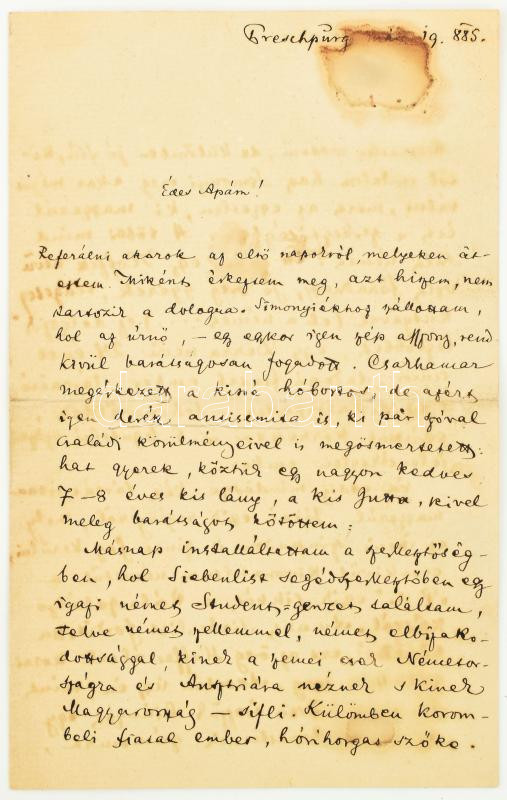 Preschpurg 19. 885.
Édes Apám!
Referálni akarok az első napokról, melyeken át-
estem. Miként érkeztem meg, azt hiszem, nem
tartozik a dologra. Simonyiékhoz szállottam,
hol az úrnő, – egy egykor igen szép asszony, rend-
kívül barátságosan fogadott. Csakhamar
megérkezett a kissé hóbortos, de azért
igen derék antisemita is, ki pár szóval
családi körülményeivel is megösmertetett:
hat gyerek, köztük egy nagyon kedves
7–8 éves kis lány, a kis Jutta, kivel
meleg barátságot kötöttem:
Másnap installáltattam a szerkesztőség-
ben, hol Siebenlist segédszerkesztőben egy
igazi német Student=genzet találtam,
telve német szellemmel, német elbizako-
dottsággal, kinek a szemei csak Németor-
szágra és Ausztriára néznek s kinek
Magyarország – sifli. Külömben korom-
beli fiatal ember, hórihorgas szőke.
darabanth